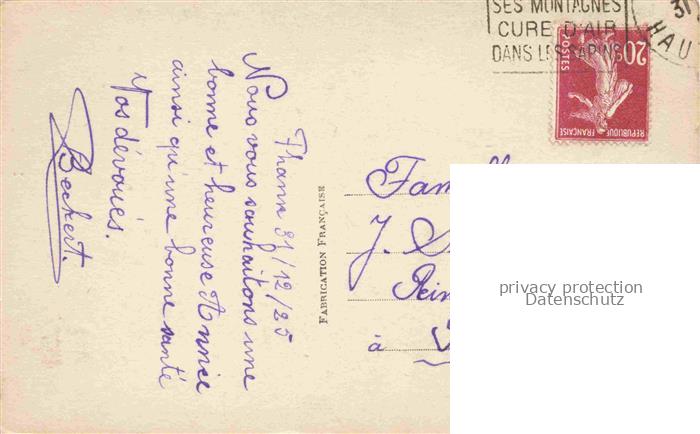 SES MONTAGNES
CURE D'AIR
DANS LES SAPINS
31
HAU
20c
POSTES
REPUBLIQUE FRANÇAISE
Thann 31/12/25
Nous vous souhaitons une
bonne et heureuse Année
ainsi qu'une bonne santé
Vos dévoués.
Beckert.
FABRICATION FRANÇAISE
Fam
J.
à
privacy protection
Datenschutz